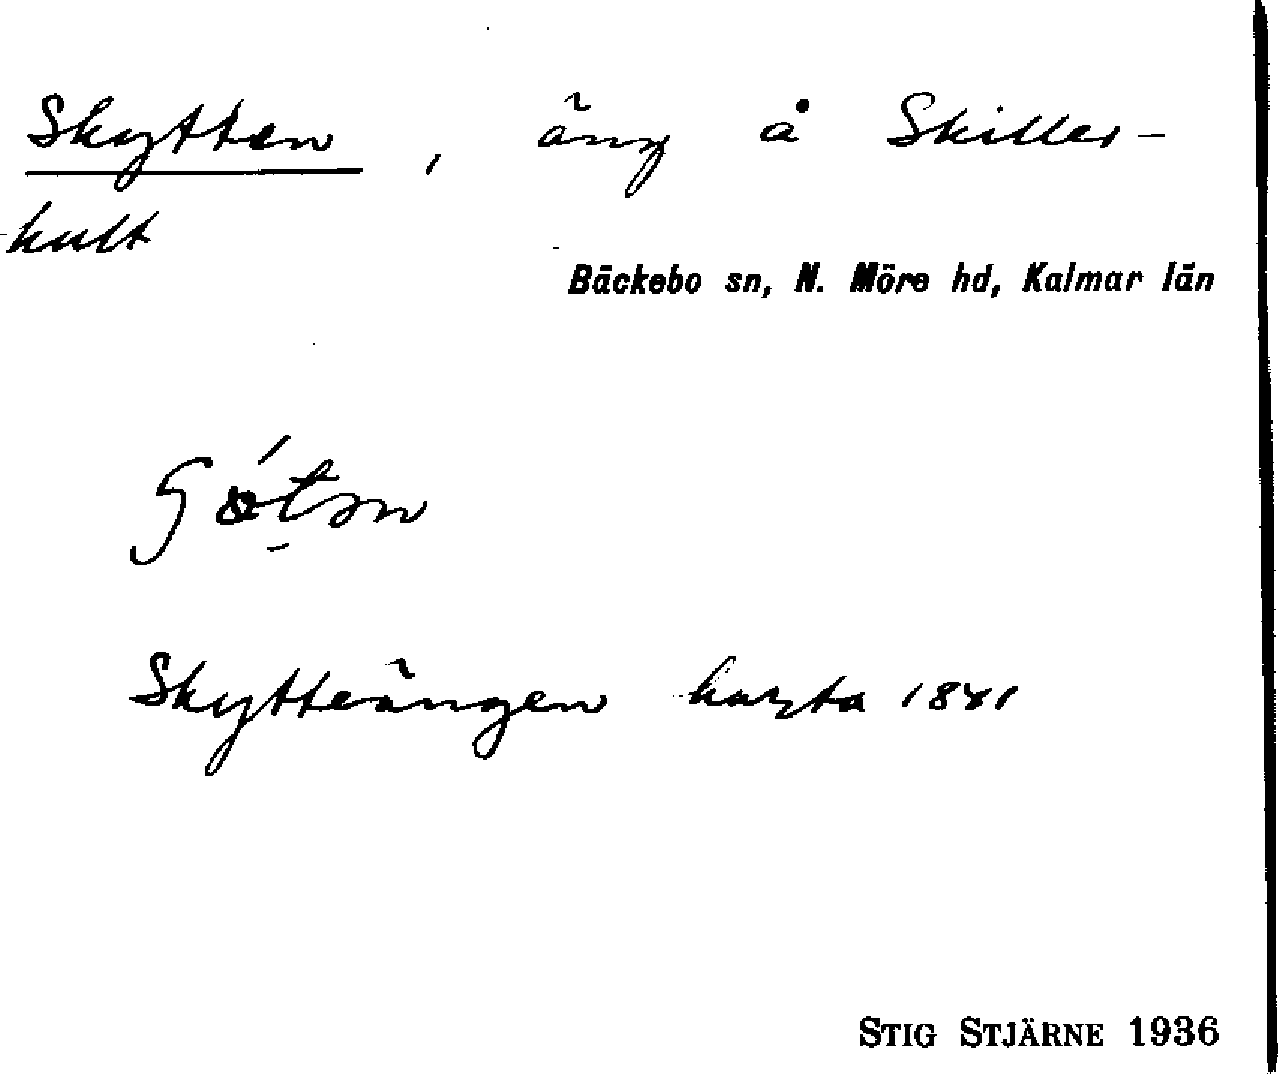 Skytten, äng å Skiller-
-kult
Bäckebo sn, N. Möre hd, Kalmar län
Skytteängen karta 1841
STIG STJÄRNE 1936